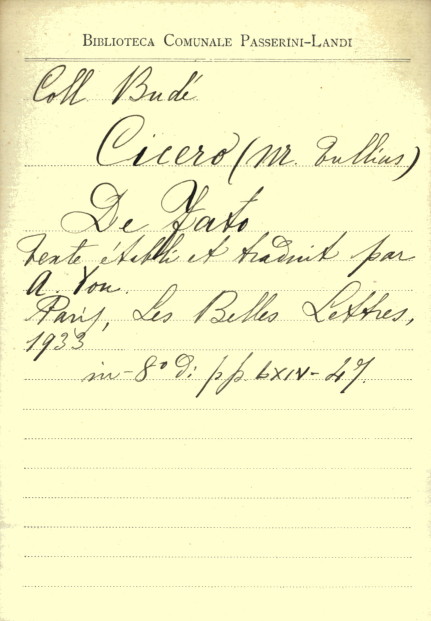 BIBLIOTECA COMUNALE PASSERINI-LANDI
Coll Budé
Cicero (M. Tullius)
De Fato
texte établi et traduit par
A. Yon.
Paris, Les Belles Lettres,
1933
in-8° di pp. LXIV-47.